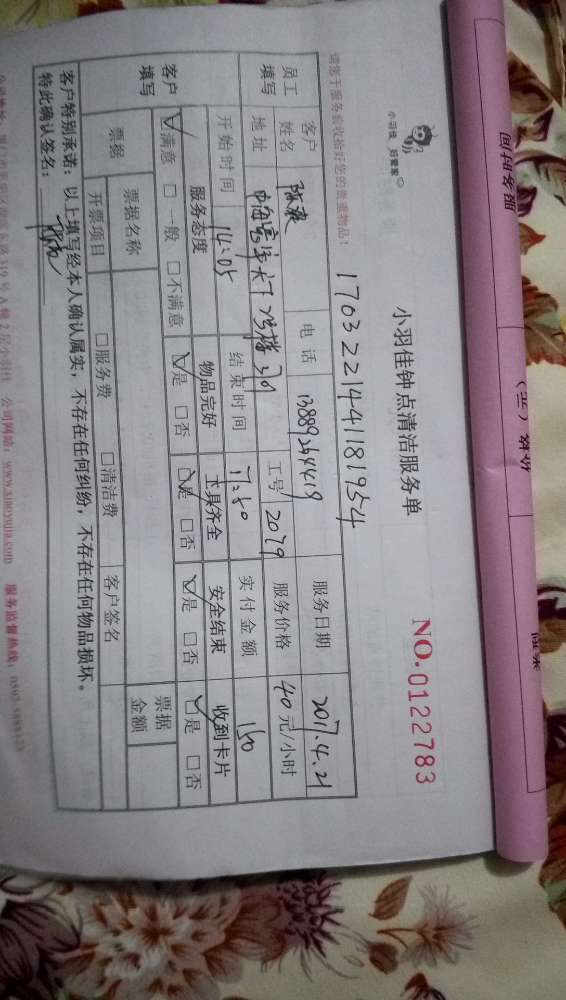 小羽佳 好管家
小羽佳钟点清洁服务单
NO.0122783
请您于服务前收拾好您的贵重物品!
1703221441181954
员工填写
客户姓名 电话 13889254419 服务日期 2017.4.21
地址 工号 2079 服务价格 40元/小时
开始时间 14:05 结束时间 17:50 实付金额 150
客户填写
服务态度 物品完好 工具齐全 安全结束 收到卡片
☑满意 □一般 □不满意 ☑是 □否 ☑是 □否 ☑是 □否 ☑是 □否
票据 票据名称 票据金额
开票项目 □服务费 □清洁费 客户签名
客户特别承诺:以上填写经本人确认属实,不存在任何纠纷,不存在任何物品损坏。
特此确认签名:
公司网站:www.xiaoyujia.com 服务监督热线: